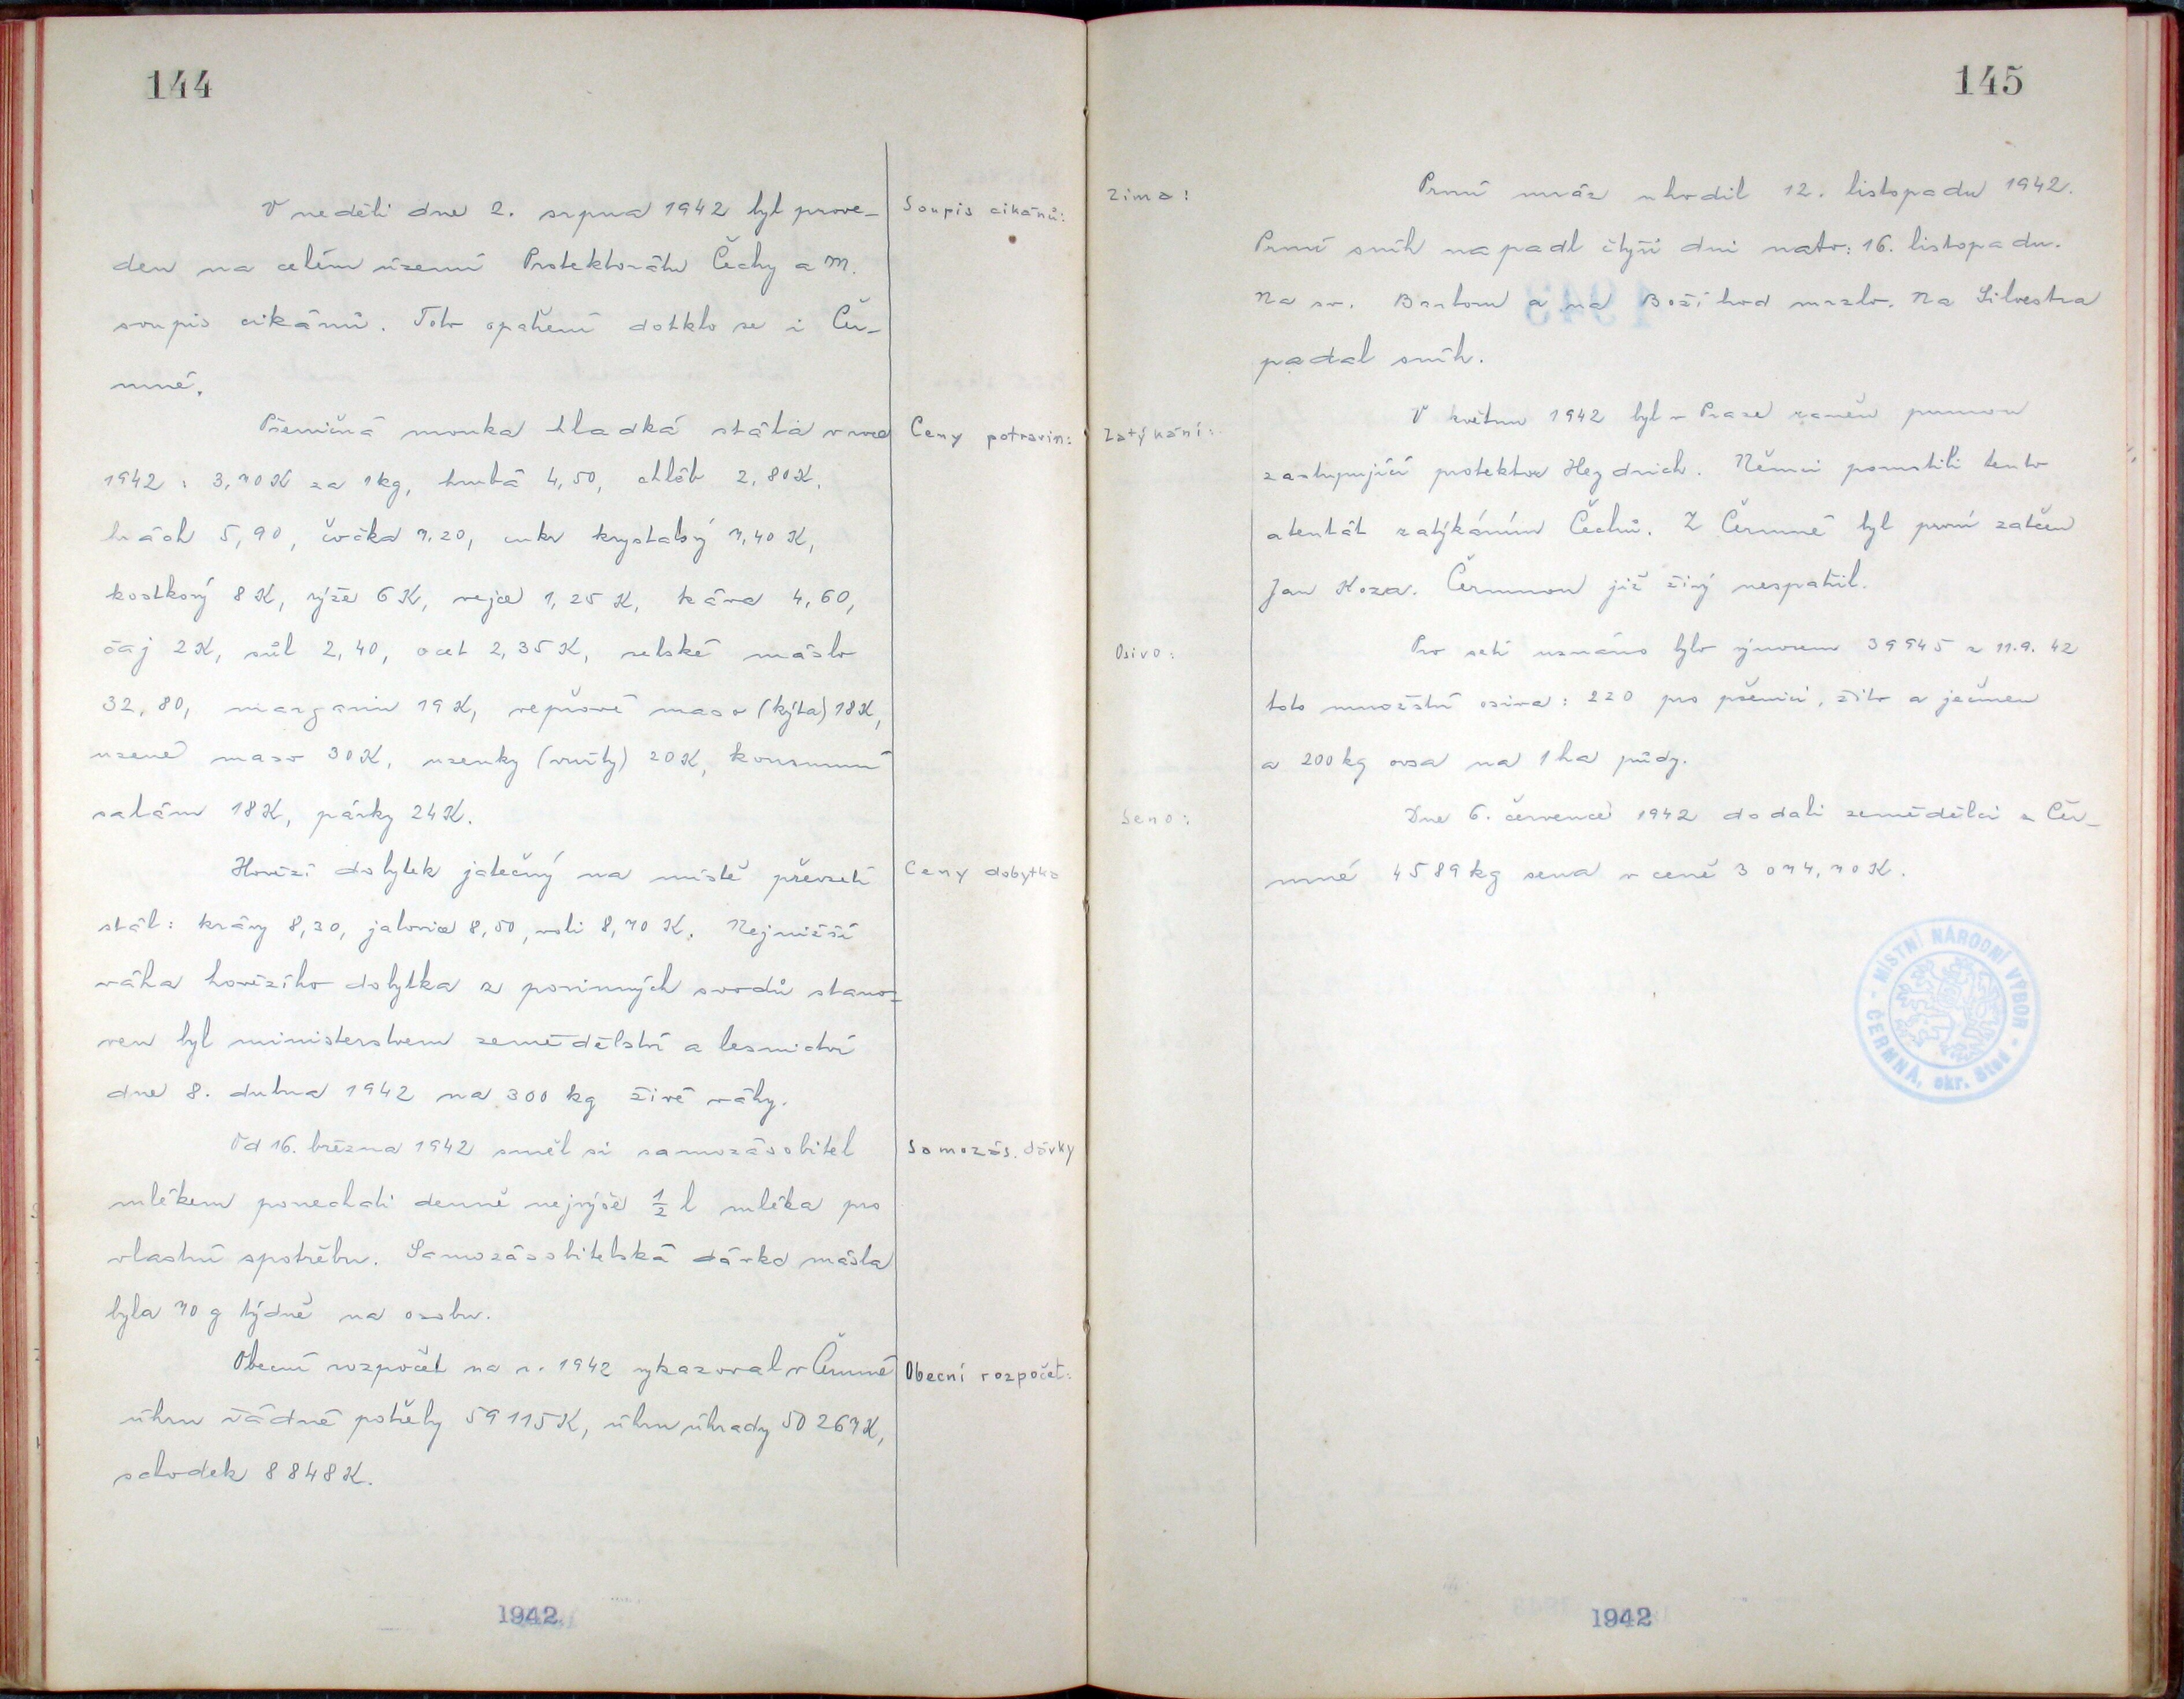 144
V neděli dne 2. srpna 1942 byl prove-
den na celém území Protektorátu Čechy a M.
soupis cikánů. Toto opatření dotklo se i Čer-
mné.
Soupis cikánů:
Pšeničná mouka hladká stála v roce
1942: 3,70 K za 1 kg, hrubá 4,50, chléb 2,80 K,
hrách 5,90, čočka 7.20, cukr krystalový 7,40 K,
kostkový 8 K, rýže 6 K, vejce 1,25 K, káva 4,60,
čaj 2 K, sůl 2,40, ocet 2,35 K, selské máslo
32,80, margarin 19 K, vepřové maso (kýta) 18 K,
uzené maso 30 K, uzenky (vuřty) 20 K, konsumní
salám 18 K, párky 24 K.
Ceny potravin:
Hovězí dobytek jatečný na místě převzetí
stál: krávy 8,30, jalovice 8,50, voli 8,70 K. Nejnižší
váha hovězího dobytka z povinných svodů stano-
ven byl ministerstvem zemědělství a lesnictví
dne 8. dubna 1942 na 300 kg živé váhy.
Ceny dobytka
Od 16. března 1942 směl si samozásobitel
mlékem ponechati denně nejvýše 1/2 l mléka pro
vlastní spotřebu. Samozásobitelská dávka másla
byla 70 g týdně na osobu.
Samozás. dávky
Obecní rozpočet na r. 1942 vykazoval v Čermné
úhrn řádné potřeby 59 115 K, úhrn úhrady 50 267 K,
schodek 8 848 K.
Obecní rozpočet:
1942
145
Zima:
První mráz uhodil 12. listopadu 1942.
První sníh napadl čtyři dni nato: 16. listopadu.
Na sv. Barboru a na Boží hod mrzlo. Na Silvestra
padal sníh.
Zatýkání:
V květnu 1942 byl v Praze raněn pumou
zastupující protektor Heydrich. Němci pomstili tento
atentát zatýkáním Čechů. Z Čermné byl první zatčen
Jan Koza. Čermnou již živý nespatřil.
Osivo:
Pro setí uznáno bylo výnosem 39945 z 11.9. 42
toto množství osiva: 220 pro pšenici, žito a ječmen
a 200 kg ovsa na 1 ha půdy.
Seno:
Dne 6. července 1942 dodali zemědělci z Čer-
mné 4589 kg sena v ceně 3 074,70 K.
MÍSTNÍ NÁRODNÍ VÝBOR
ČERMNÁ, okr. Stod
1942